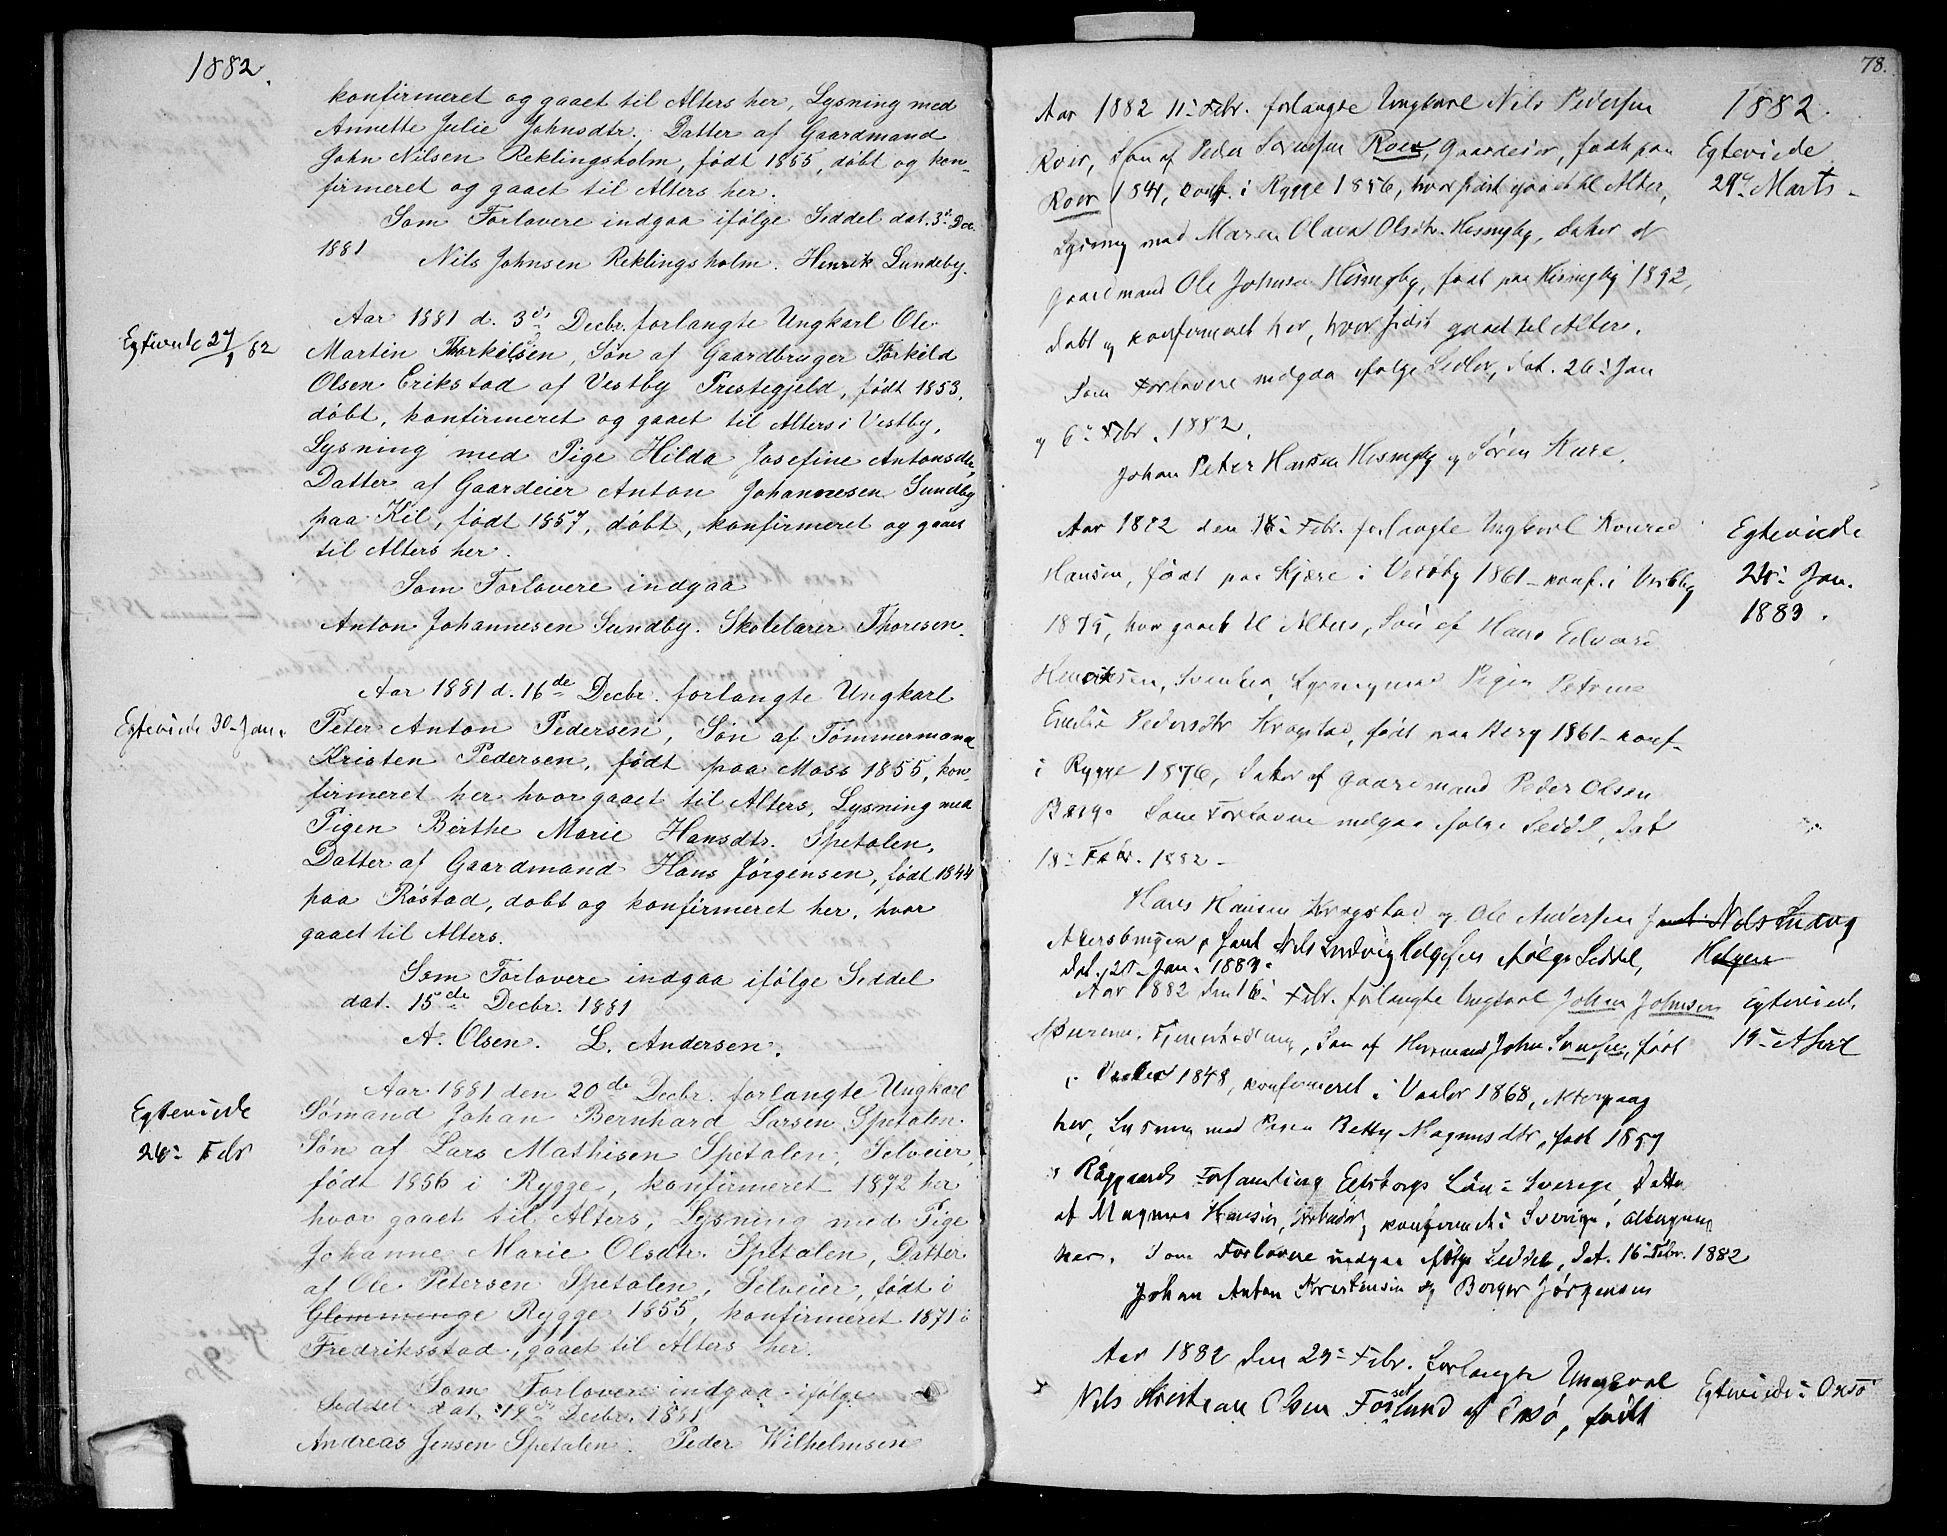 1882.
konfirmeret og gaaet til Alters her, Lysning med
Annette Julie Johnsdtr. Datter af Gaardmand
John Nilsen Reklingsholm, født 1855, døbt og kon-
firmeret og gaaet til Alters her.
Som Forlovere indgaa ifølge Seddel dat. 3d Dec.
1881
Nils Johnsen Reklingsholm. Henrik Lundeby.
Egteviede 27/1 82
Aar 1881 d. 3de Decbr. forlangte Ungkarl Ole
Martin Thorkilsen, Søn af Gaardbruger Torkild
Olsen Erikstad af Vestby Prestegjeld, født 1853,
døbt, konfirmeret og gaaet til Alters i Vestby,
Lysning med Pige Hilda Josefine Antonsdtr,
Datter af Gaardeier Anton Johannesen Sundby
paa Kil, født 1857, døbt, konfirmeret og gaaet
til Alters her.
Som Forlovere indgaa
Anton Johannesen Sundby. Skolelærer Thoresen.
Egteviede 30- Jan.
Aar 1881 d. 16de Decbr. forlangte Ungkarl
Peter Anton Pedersen, Søn af Tømmermand
Kristen Pedersen, født paa Moss 1855, kon-
firmeret her hvor gaaet til Alters, Lysning med
Pigen Birthe Marie Hansdtr. Spetalen,
Datter af Gaardmand Hans Jørgensen, født 1844
paa Røstad, døbt og konfirmeret her, hvor
gaaet til Alters.
Som Forlovere indgaa ifølge Seddel
dat. 15de Decbr. 1881
A. Olsen. L. Andersen.
Egteviede
Febr
Aar 1881 den 20de Decbr. forlangte Ungkarl
Sømand Johan Bernhard Larsen Spetalen
Søn af Lars Mathisen Spetalen, Selveier,
født 1856 i Rygge, konfirmeret 1872 her
hvor gaaet til Alters, Lysning med Pige
Johanne Marie Olsdtr. Spetalen, Datter
af Ole Petersen Spetalen, Selveier, født i
Glemminge Rygge 1855, konfirmeret 1871 i
Fredriksstad, gaaet til Alters her.
Som Forlovere indgaa ifølge
Seddel dat. 19de Decbr. 1881
Andreas Jensen Spetalen. Peder Wilhelmsen
78.
1882.
Egteviede
29de Marts -
Aar 1882 11- Febr. forlangte Ungkarl Nils Pedersen
Roer, Søn af Peder Sørensen Roer, Gaardeier, født paa
Roer 1841, konf. i Rygge 1856, hvor sidst gaaet til Alter,
Lysning med Maren Olava Olsdtr. Hisingby, datter af
Gaardmand Ole Johnsen Hisingby, født paa Hisingby
døbt og konfirmeret her, hvor sidst gaaet til Alters.
Som Forlovere indgaa ifølge Sedler, dat. 26- Jan
og 6- Febr. 1882.
Johan Peter Hansen Hisingby og Søren Kure.
Egteviede
Jan.
1883.
Aar 1882 den 18- Febr. forlangte Ungkarl Konrad
Hansen, født paa Kjære i Vestby 1861- konf. i Vestby
1875, hvor gaaet til Alters, Søn af Hans Edvard
Henriksen, Lysning med Pigen Petrine
Emilie Pedersdtr Krogstad, født paa Berg 1861- konf-
i Rygge 1876, datter af Gaardmand Peder Olsen
Berg. Som Forlovere indgaa ifølge Seddel, dat
18- Febr. 1882 -
Hans Hansen Krogstad og Ole Andersen samt Nils Ludvig
Akersbringen, samt Nils Ludvig Helgesen ifølge Seddel, Helgesen
dat. Jan. 1883.
Egteviede
19- April
Aar 1882 den 16- Febr. forlangte Ungkarl Johan Johnsen
Søn af Husmand John Svensen, født
i Vaaler 1848, konfirmeret i Vaaler 1868, Altergang
her, Lysning med Pigen Betty Magnusdtr, født 1857
i Forsamling Elfsborgs Län i Sverige, Datter
af Magnus Hansen, Arbeider, konfirmeret i Sverige, altergang
her. Som Forlovere indgaa ifølge Seddel, dat. 16- Febr. 1882
Johan Anton Kristensen og Borger Jørgensen
Egteviede i Onsø
Aar 1882 den 23- Febr. forlangte Ungkarl
Nils Kristian Olsen Forsetlund af Onsø, født